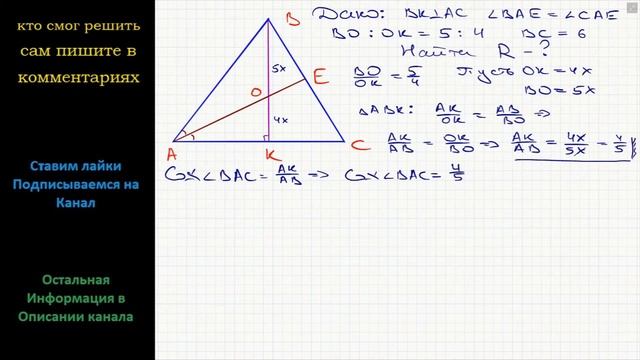 кто смог решить
сам пишите в
комментариях
Ставим лайки
Подписываемся на
Канал
Остальная
Информация в
Описании канала
B
5x
E
O
4x
A
K
C
Дано: BK⊥AC ∠BAE = ∠CAE
BO : OK = 5 : 4 BC = 6
Найти R - ?
BO/OK = 5/4 Пусть OK = 4x
BO = 5x
△ABK: AK/OK = AB/BO ⇒
AK/AB = OK/BO ⇒ AK/AB = 4x/5x = 4/5
Cos∠BAC = AK/AB ⇒ Cos∠BAC = 4/5